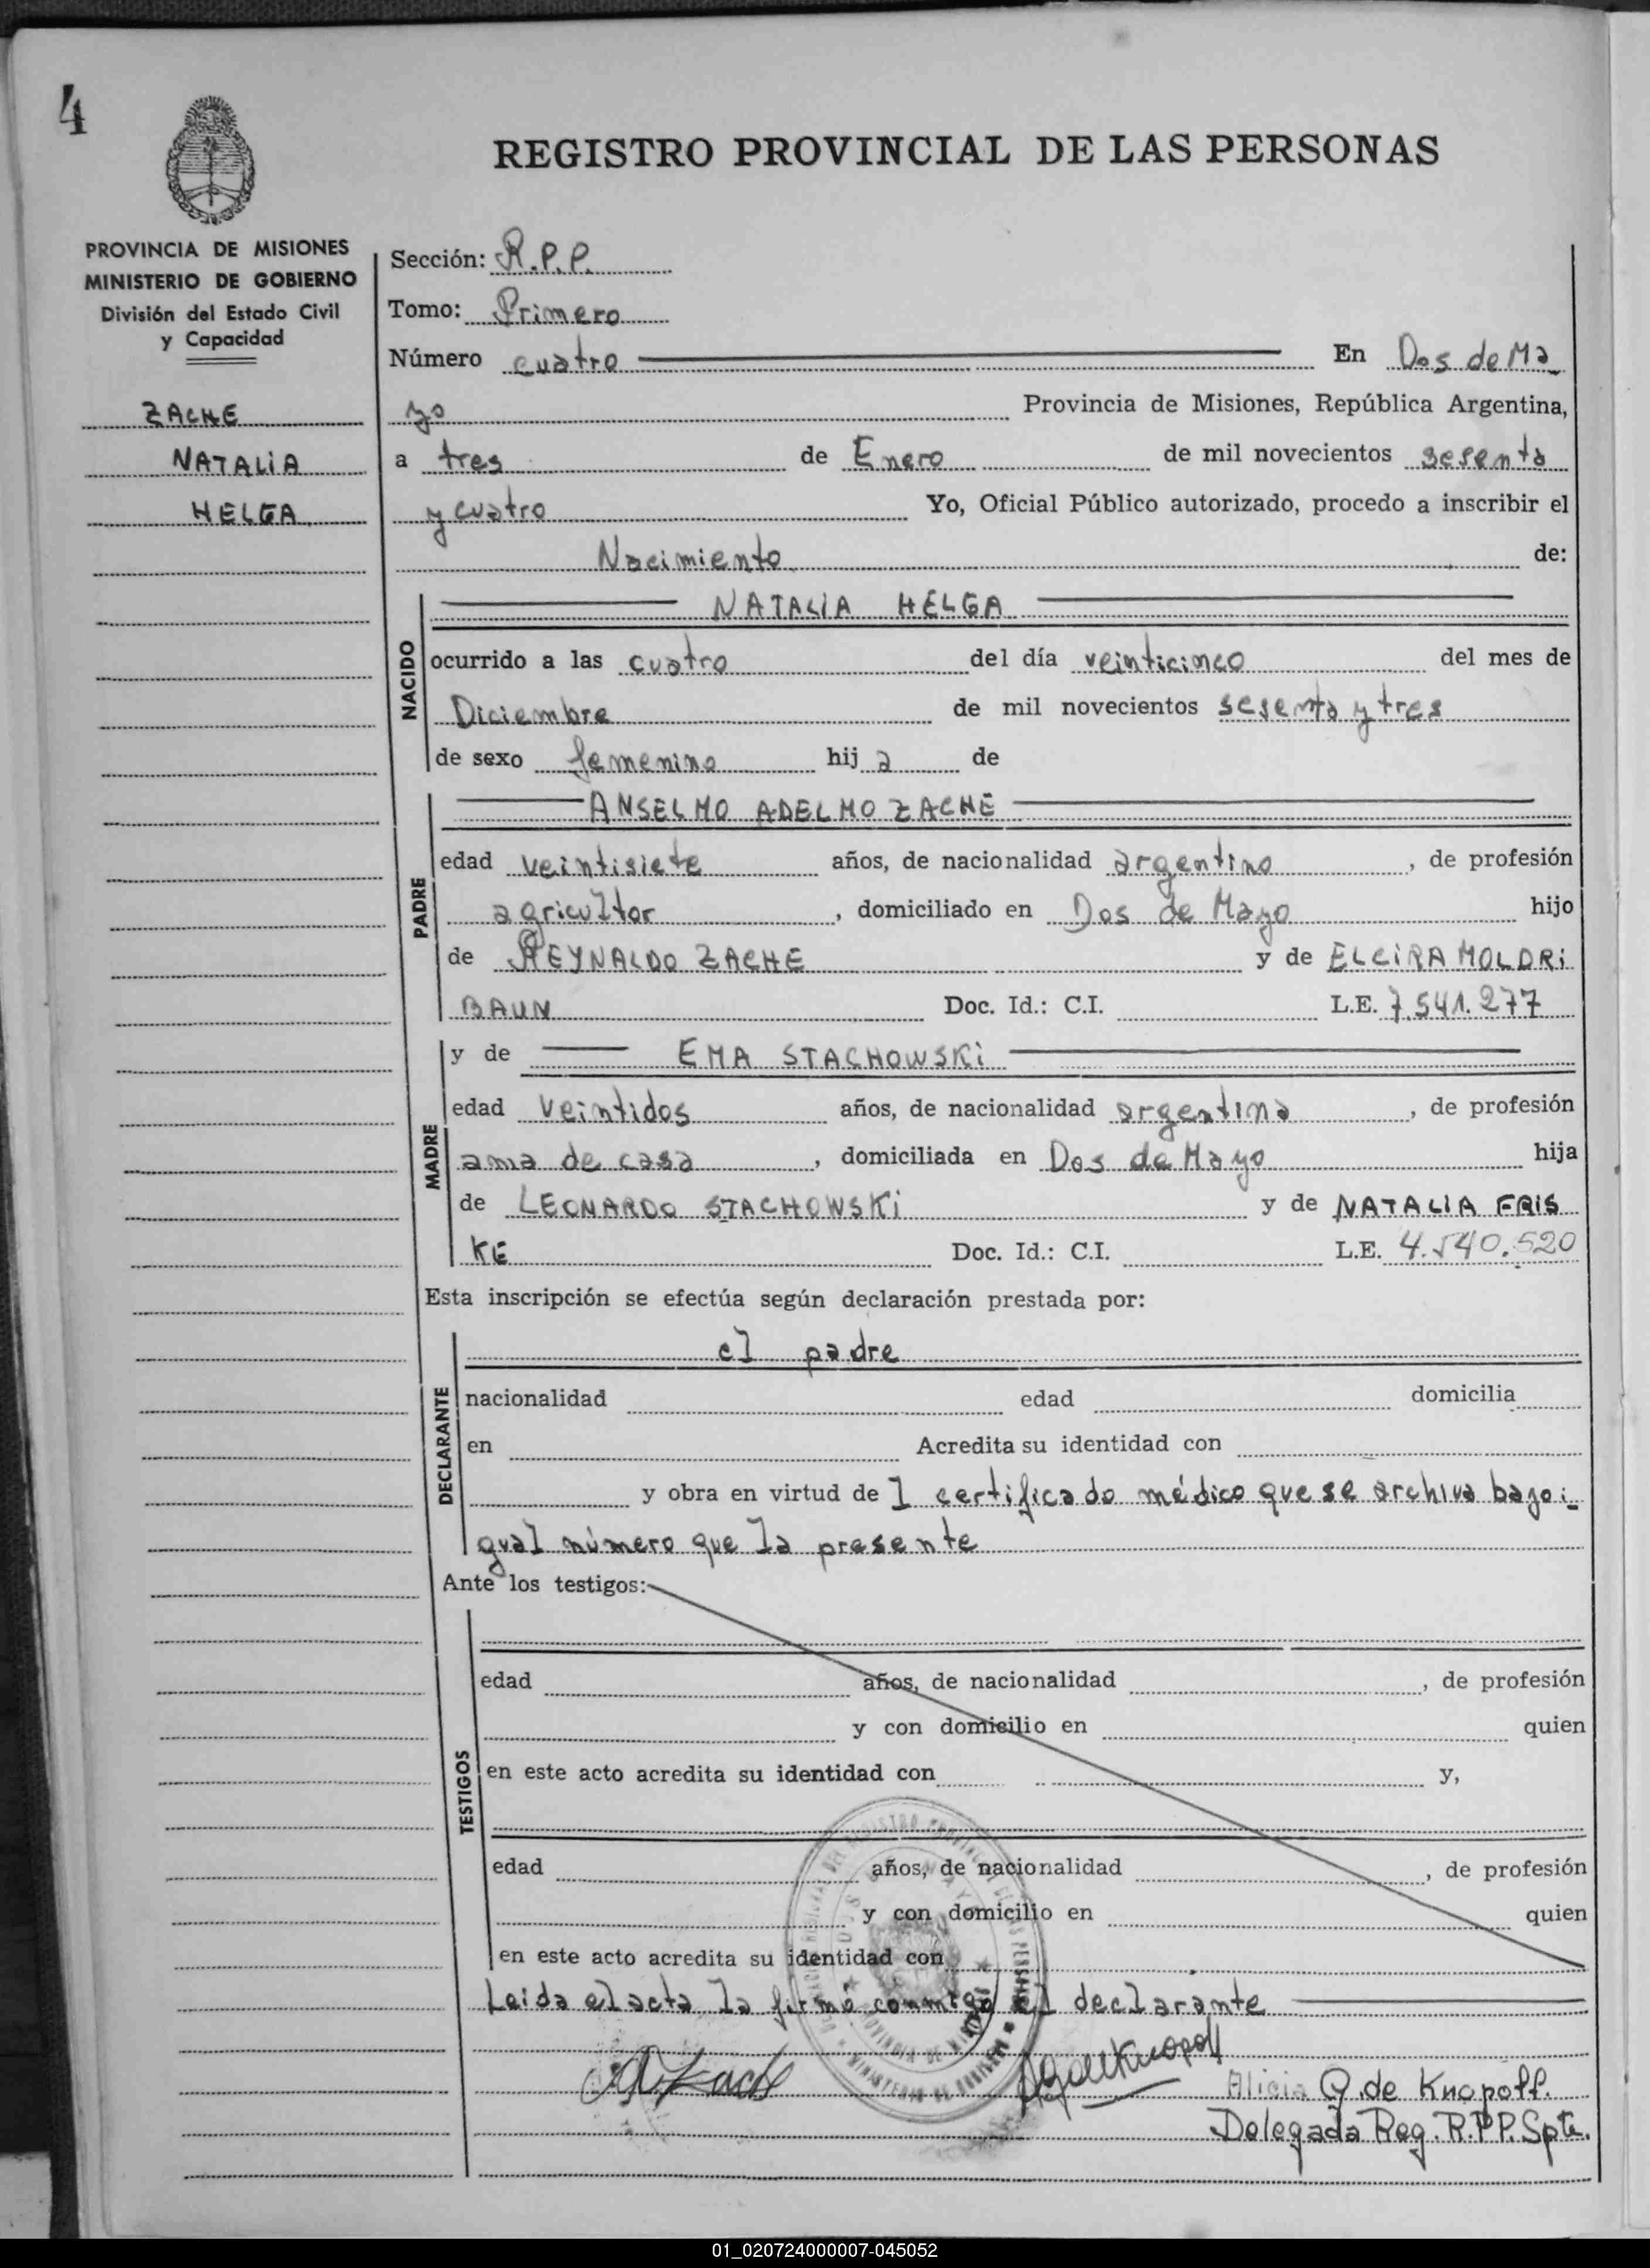 4
REGISTRO PROVINCIAL DE LAS PERSONAS
PROVINCIA DE MISIONES
MINISTERIO DE GOBIERNO
División del Estado Civil
y Capacidad
ZACHE
NATALIA
HELGA
Sección: R.P.P.
Tomo: Primero
Número cuatro En Dos de Ma_
yo Provincia de Misiones, República Argentina,
a tres de Enero de mil novecientos sesenta
y cuatro Yo, Oficial Público autorizado, procedo a inscribir el
Nacimiento de:
NACIDO
NATALIA HELGA
ocurrido a las cuatro del día veinticinco del mes de
Diciembre de mil novecientos sesenta y tres
de sexo femenino hij a de
PADRE
ANSELMO ADELMO ZACHE
edad veintisiete años, de nacionalidad argentino, de profesión
agricultor, domiciliado en Dos de Mayo hijo
de REYNALDO ZACHE y de ELCIRA MOLDRI
BAUN Doc. Id.: C.I. L.E. 7.541.277
MADRE
y de EMA STACHOWSKI
edad veintidos años, de nacionalidad argentina, de profesión
ama de casa, domiciliada en Dos de Mayo hija
de LEONARDO STACHOWSKI y de NATALIA FRIS
KE Doc. Id.: C.I. L.E. 4.540.520
Esta inscripción se efectúa según declaración prestada por:
DECLARANTE
el padre
nacionalidad edad domicilia
en Acredita su identidad con
y obra en virtud de 1 certificado médico que se archiva bajo i_
gual número que la presente
Ante los testigos:
TESTIGOS
edad años, de nacionalidad , de profesión
y con domicilio en quien
en este acto acredita su identidad con y,
edad años, de nacionalidad , de profesión
y con domicilio en quien
en este acto acredita su identidad con
Leida el acta la firmó conmigo el declarante
Alicia G. de Knopoff.
Delegada Reg. R.P.P. Spte.
01_020724000007-045052